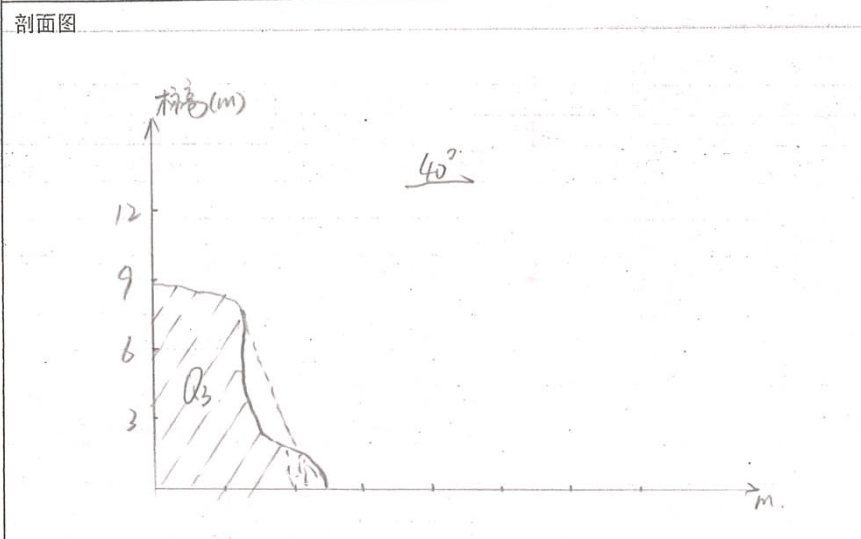 剖面图
标高(m)
40°
12
9
6
Q3
3
m.